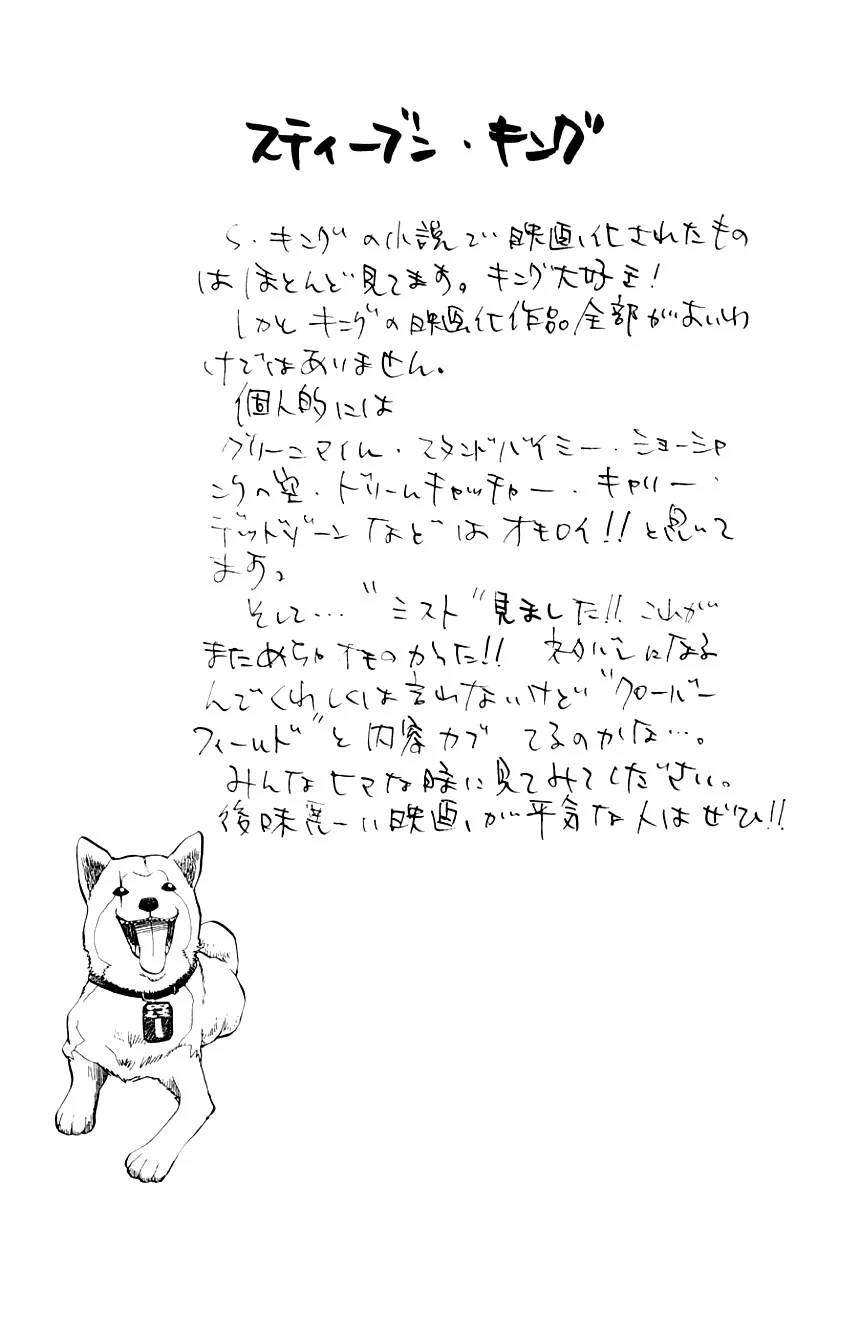 スティーブン・キング
S・キングの小説で映画化されたもの
はほとんど見てます。キング大好き!
しかしキングの映画化作品全部がよいわ
けではありません。
個人的には
グリーンマイル・スタンドバイミー・ショーシャ
ンクの空・ドリームキャッチャー・キャリー・
デッドゾーンなどはオモロイ!!と思いて
ます。
そして…"ミスト"見ました!!これが
まためちゃオモロかった!!ネタバレになる
んでくわしくは言わないけど"クローバー
フィールド"と内容カブってるのかな…。
みんなヒマな時に見てみてください。
後味悪ーい映画が平気な人はぜひ!!